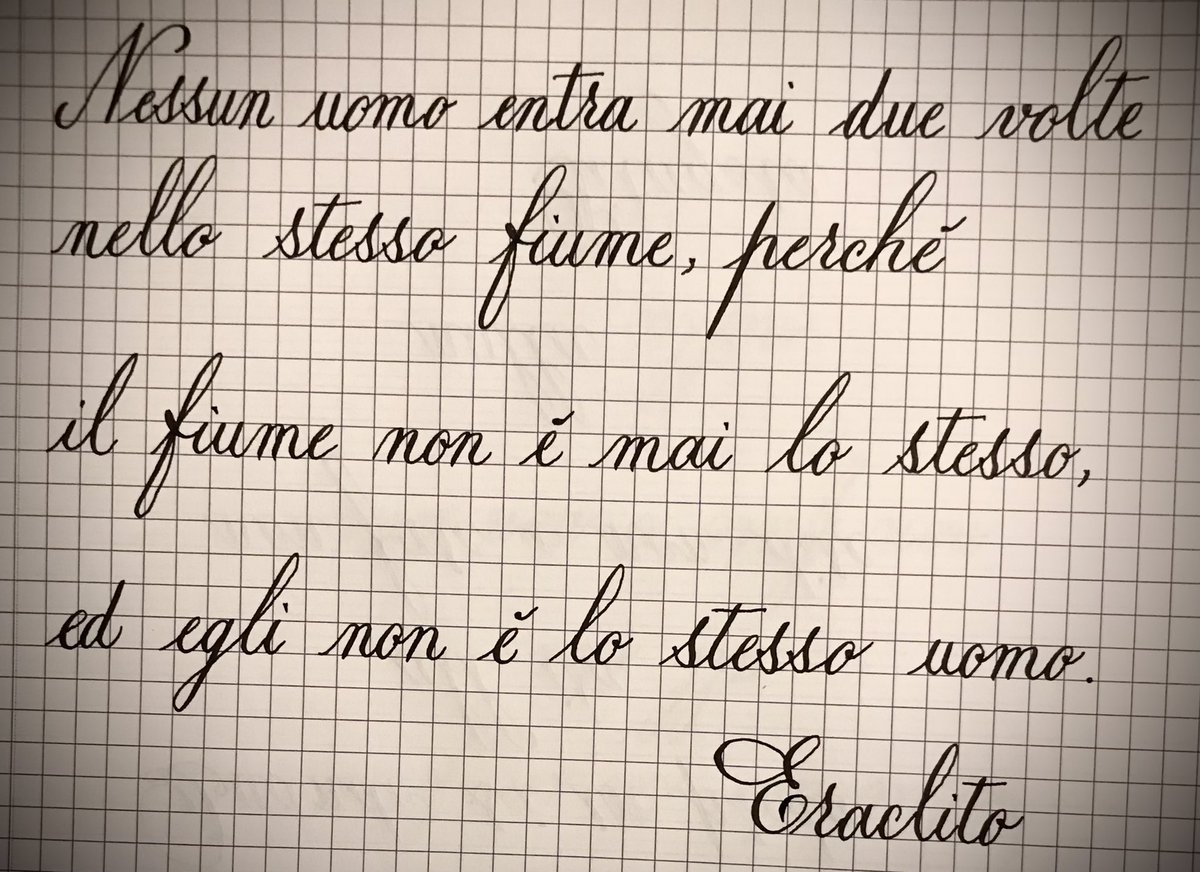 Nessun uomo entra mai due volte
nello stesso fiume, perché
il fiume non è mai lo stesso,
ed egli non è lo stesso uomo.
Eraclito